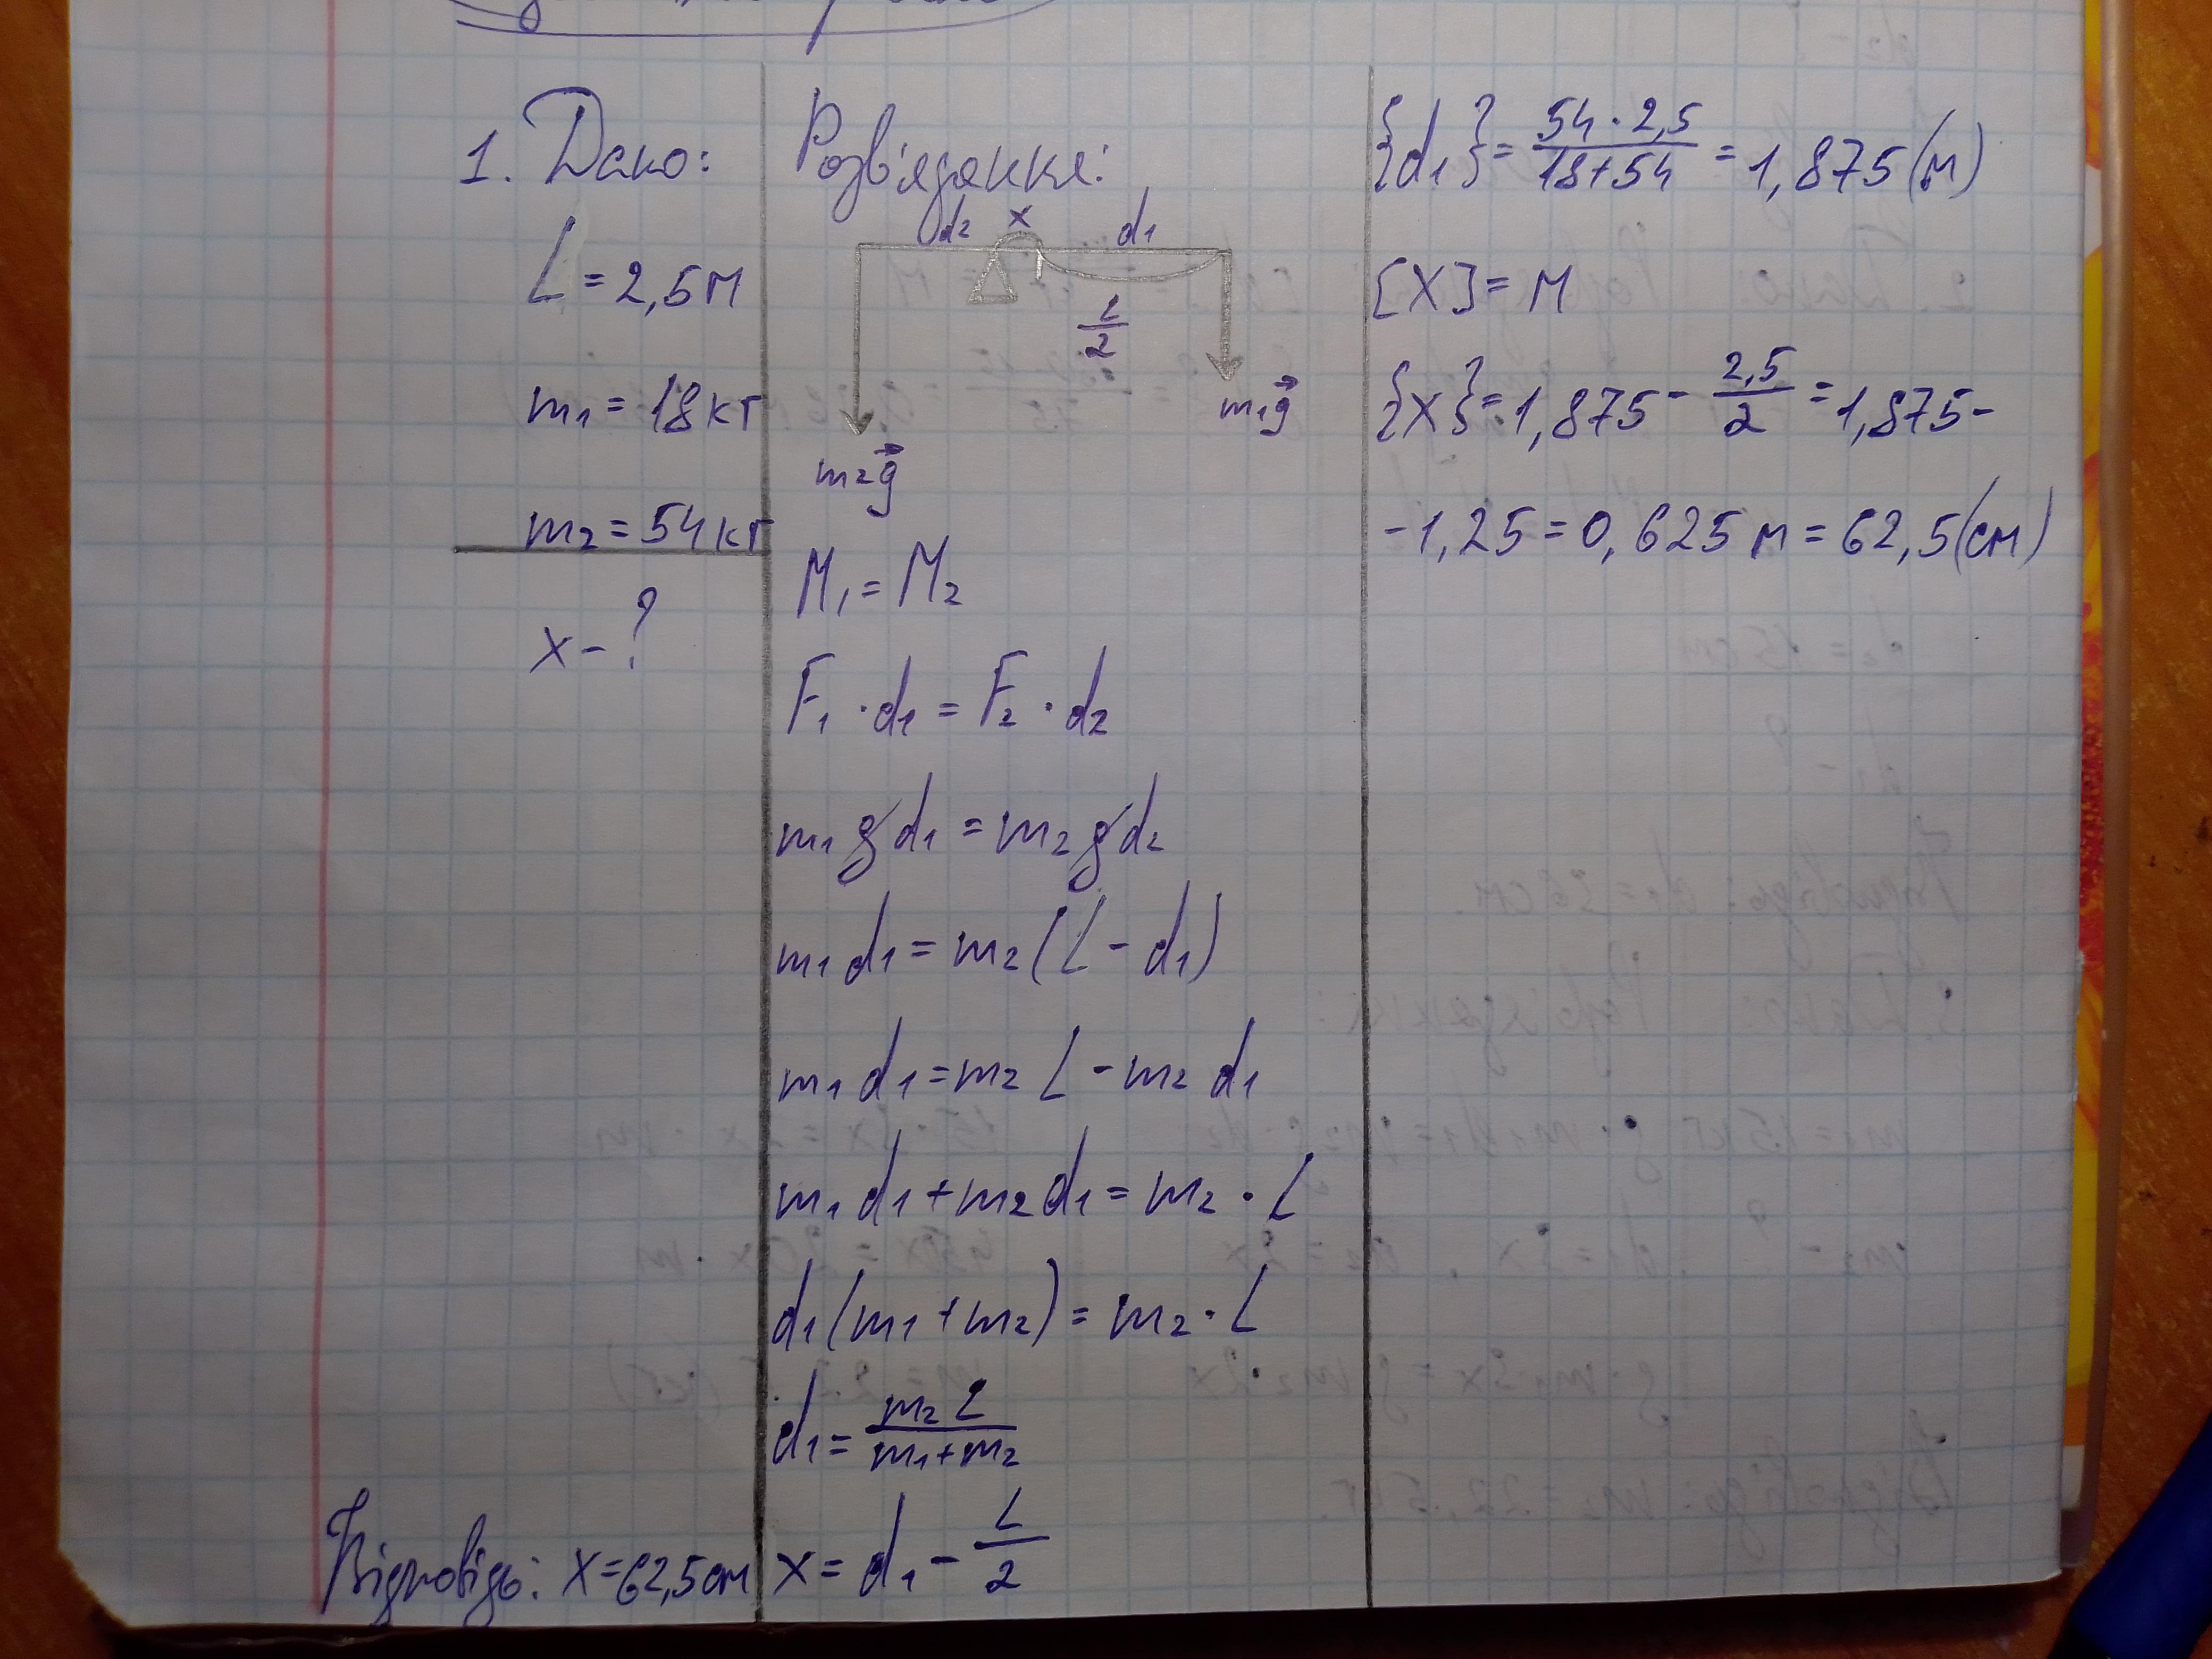 1. Дано:
L = 2,5 м
m₁ = 18 кг
m₂ = 54 кг
x - ?
Розв'язання:
d₂ x d₁
L/2
m₁g⃗
m₂g⃗
M₁ = M₂
F₁ · d₁ = F₂ · d₂
m₁ g d₁ = m₂ g d₂
m₁ d₁ = m₂ (L - d₁)
m₁ d₁ = m₂ L - m₂ d₁
m₁ d₁ + m₂ d₁ = m₂ · L
d₁ (m₁ + m₂) = m₂ · L
d₁ = m₂ L / m₁ + m₂
x = d₁ - L/2
{d₁} = 54 · 2,5 / 18 + 54 = 1,875 (м)
[X] = м
{X} = 1,875 - 2,5/2 = 1,875 -
- 1,25 = 0,625 м = 62,5 (см)
Відповідь: x = 62,5 см